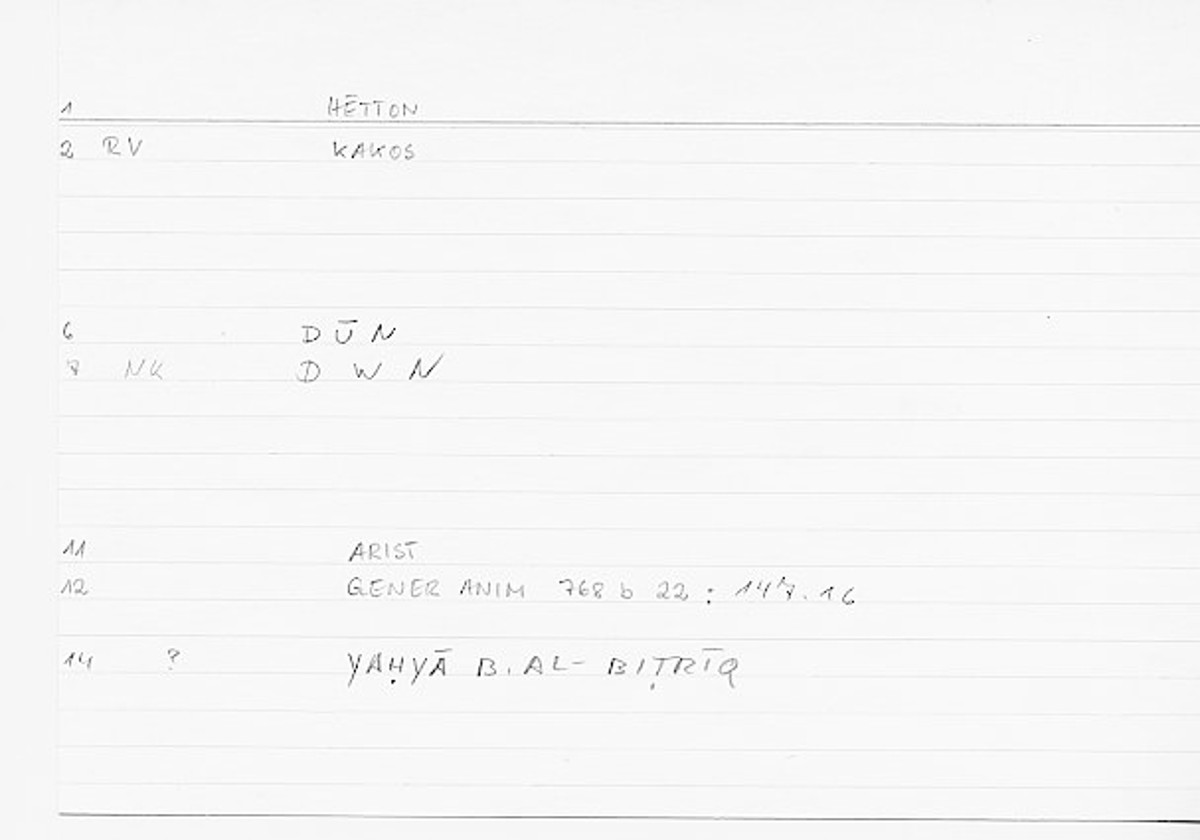 1 HĒTTON
2 RV KAKOS
6 DŪN
7 NK DWN
11 ARIST
12 GENER ANIM 768 b 22 : 147.16
14 ? YAḤYĀ B. AL-BIṬRĪQ